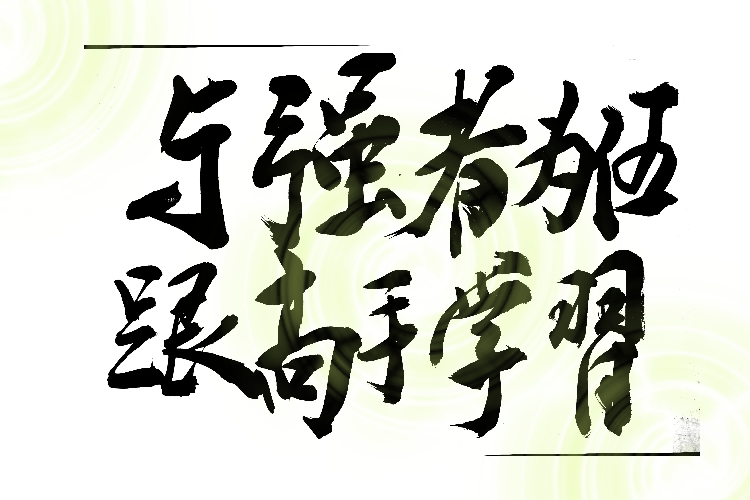 与强者为伍
跟高手学習